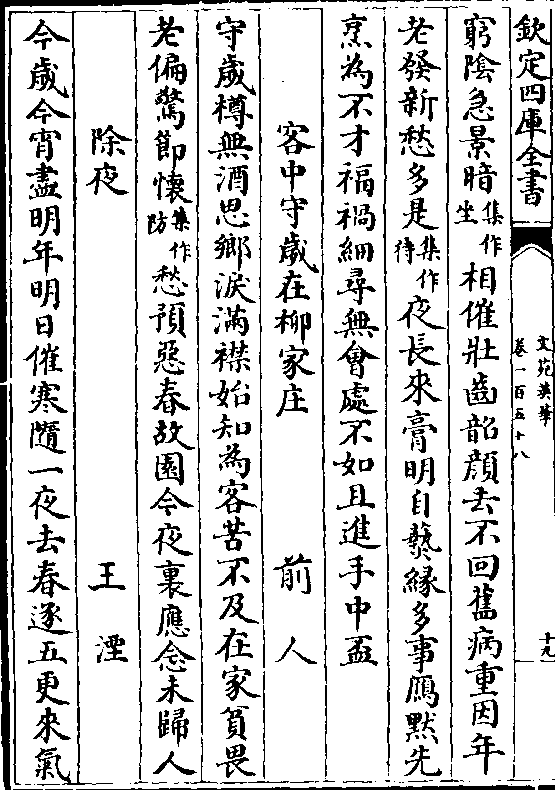 欽定四庫全書
文苑英華
卷一百五十八
十九
窮陰急景暗集作坐相催壯齒韶顔去不回舊病重因年
老發新愁多是集作待夜長來膏明自爇緣多事鴈黙先
烹為不才禍福細尋無會處不如且進手中盃
客中守歲在柳家庄 前人
守歲樽無酒思鄉淚滿襟始知為客苦不及在家貧畏
老偏驚節懷集作防愁預惡春故園今夜裏應念未歸人
除夜 王湮
今歲今宵盡明年明日催寒隨一夜去春逐五更來氣